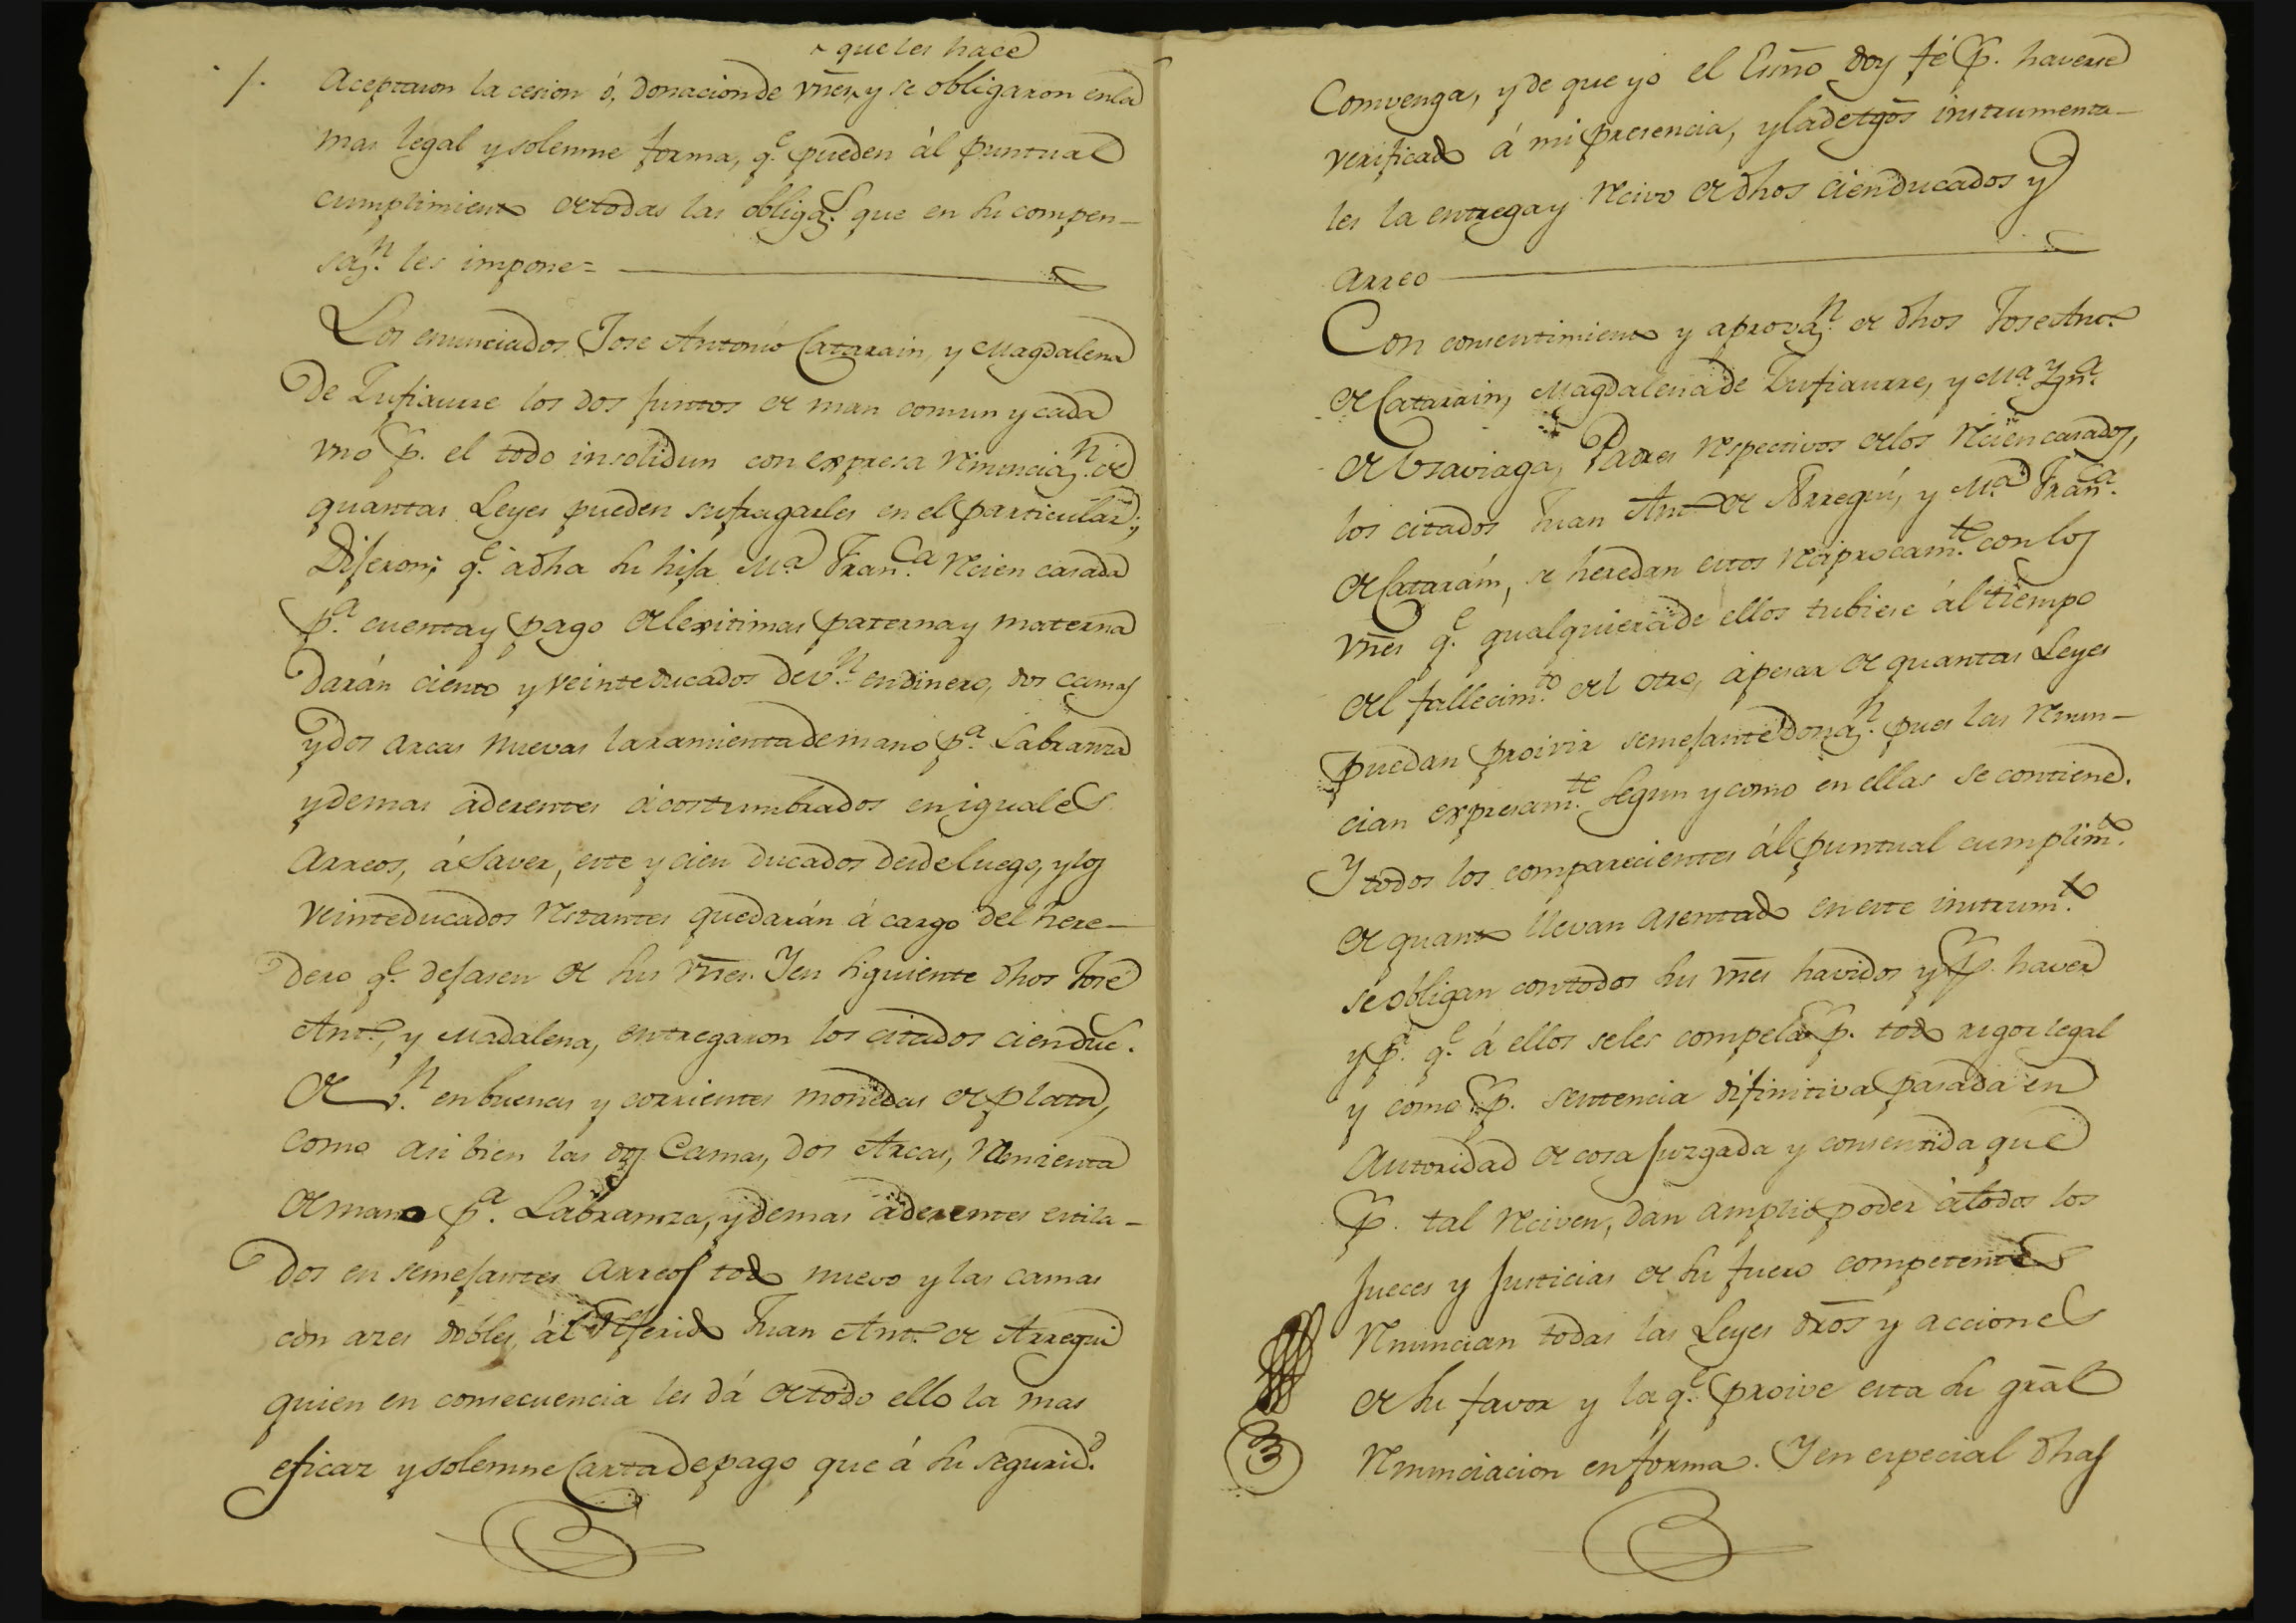 que les hace
/. Aceptaron la cesion ó, donacion de vnes, y se obligaron en la
mas legal y solemne forma, q.e pueden àl puntual
cumplimiento de todas las obligaz.s que en su compen-
saz.n les impone=
Los enunciados Jose Antonio Catarain, y Magdalena
de Yufiaurre los dos juntos de man comun y cada
vno p. el todo insolidun con expresa renunciaz.n de
quantas Leyes pueden sufragarles en el particular;
Dijeron; q.e à dha su hija M.a Fran.ca recien casada
p.a cuenta y pago de lexitimas paterna y materna
darán ciento y veinte ducados de v.n en dinero, dos camas
y dos arcas nuevas la ramienta de mano p.a Labranza
y demas àderentes àcostumbrados en iguales
Arreos, á Saver, este y cien ducados desde luego, y los
veinte ducados restantes quedarán á cargo del here-
dero q.e dejasen de sus vnes. Y en siguiente dhos José
Ant.o, y Madalena, entregaron los citados cien duc.s
de v.n en buenas y corrientes monedas de plata,
como asi bien las dos Camas, dos Arcas, rramienta
de mano p.a Labranza, y demas àderentes estila-
dos en semejantes Arreos todo nuevo y las camas
con azes dobles, àl referido Juan Ant.o de Arregui
quien en consecuencia les dá de todo ello la mas
eficaz y solemne Carta de pago que á su segurid.d
Comvenga, y de que yo el Esno doy fé p. haverse
verificado á mi presencia, y la de tgos instrumenta-
les la entrega y recivo de dhos cien ducados y
arreo
Con consentimiento y aprovaz.n de dhos Jose Ant.o
de Catarain, Magdalena de Yufiaurre, y M.a Ygn.a
de Vsaviaga, Padres respectivos de los recien casados,
los citados Juan Ant.o de Arregui, y M.a Fran.ca
de Cataráin, se heredan estos reciprocam.te con los
vnes q.e qualquiera de ellos tubiese àl tiempo
del fallecim.to del otro, à pesar de quantas Leyes
puedan proivir semejante donaz.n pues las renun-
cian expresam.te segun y como en ellas se contiene.
Y todos los comparecientes àl puntual cumplim.to
de quanto llevan asentado en este instrum.to
se obligan con todos sus vnes havidos y p. haver
y p.a q.e á ellos se les compela p. todo rigor legal
y como p. sentencia difinitiva pasada en
Autoridad de cosa juzgada y consentida que
p. tal reciven, dan amplio poder à todos los
Jueces y Justicias de su fuero competentes
renuncian todas las Leyes dros y acciones
de su favor y la q.e proive esta su gral
renunciacion en forma. Y en especial dhas